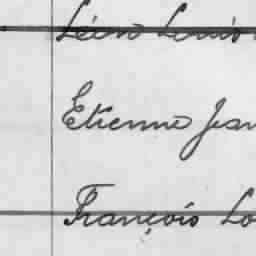 Léon Louis
Etienne Jean
François Lo